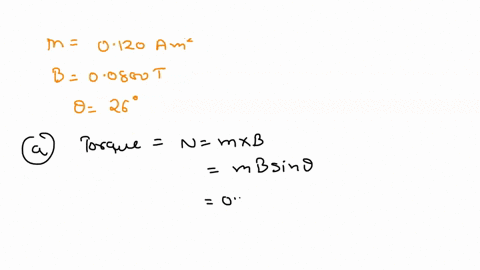 m = 0.120 Am²
B = 0.0800 T
θ = 26°
(a) Torque = N = m×B
= mBsinθ
= 0..